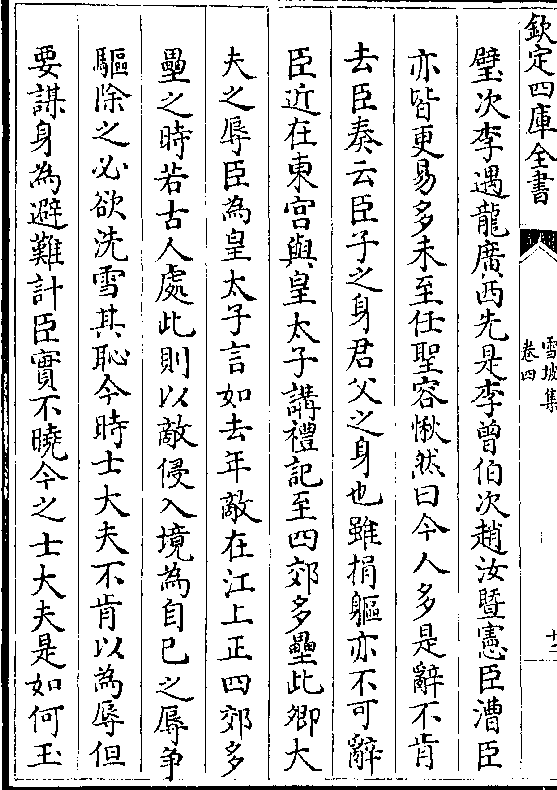 欽定四庫全書
雪坡集
卷四
十二
璧次李遇龍廣西先是李曾伯次趙汝暨憲臣漕臣
亦皆更易多未至任聖容愀然曰今人多是辭不肯
去臣奏云臣子之身君父之身也雖捐軀亦不可辭
臣近在東宮與皇太子講禮記至四郊多壘此卿大
夫之辱臣為皇太子言如去年敵在江上正四郊多
壘之時若古人處此則以敵侵入境為自已之辱争
驅除之必欲洗雪其恥今時士大夫不肯以為辱但
要謀身為避難計臣實不曉今之士大夫是如何玉